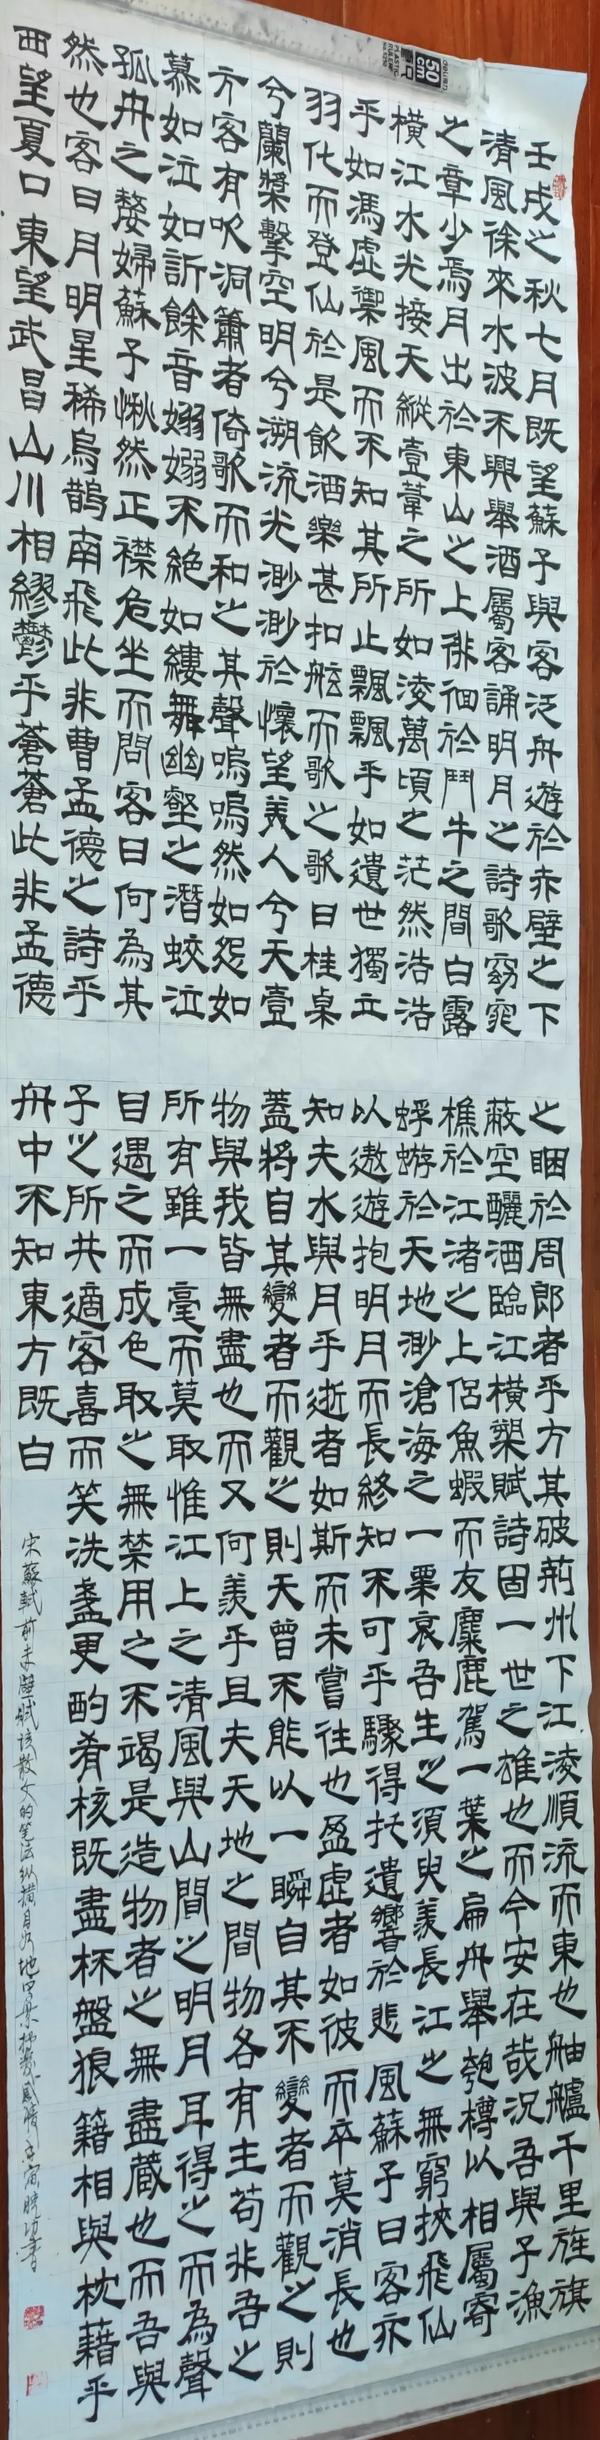 壬戌之秋七月既望蘇子與客泛舟遊於赤壁之下
清風徐來水波不興舉酒屬客誦明月之詩歌窈窕
之章少焉月出於東山之上徘徊於鬥牛之間白露
橫江水光接天縱壹葦之所如淩萬頃之茫然浩浩
乎如馮虛禦風而不知其所止飄飄乎如遺世獨立
羽化而登仙於是飲酒樂甚扣舷而歌之歌曰桂桌
兮蘭槳擊空明兮溯流光渺渺於懷望美人兮天壹
方客有吹洞簫者倚歌而和之其聲嗚嗚然如怨如
慕如泣如訴餘音嫋嫋不絕如縷舞幽壑之潛蛟泣
孤舟之嫠婦蘇子愀然正襟危坐而問客曰何為其
然也客曰月明星稀烏鵲南飛此非曹孟德之詩乎
西望夏口東望武昌山川相繆鬱乎蒼蒼此非孟德
之困於周郎者乎方其破荊州下江淩順流而東也舳艫千里旌旗
蔽空釃酒臨江橫槊賦詩固一世之雄也而今安在哉況吾與子漁
樵於江渚之上侶魚蝦而友麋鹿駕一葉之扁舟舉匏樽以相屬寄
蜉蝣於天地渺滄海之一粟哀吾生之須臾羨長江之無窮挾飛仙
以遨遊抱明月而長終知不可乎驟得托遺響於悲風蘇子曰客亦
知夫水與月乎逝者如斯而未嘗往也盈虛者如彼而卒莫消長也
蓋將自其變者而觀之則天曾不能以一瞬自其不變者而觀之則
物與我皆無盡也而又何羨乎且夫天地之間物各有主苟非吾之
所有雖一毫而莫取惟江上之清風與山間之明月耳得之而為聲
目遇之而成色取之無禁用之不竭是造物者之無盡藏也而吾與
子之所共適客喜而笑洗盞更酌肴核既盡杯盤狼籍相與枕藉乎
舟中不知東方既白
宋蘇軾前赤壁賦該散文的笔法纵横自如地写景抒發感情壬寅